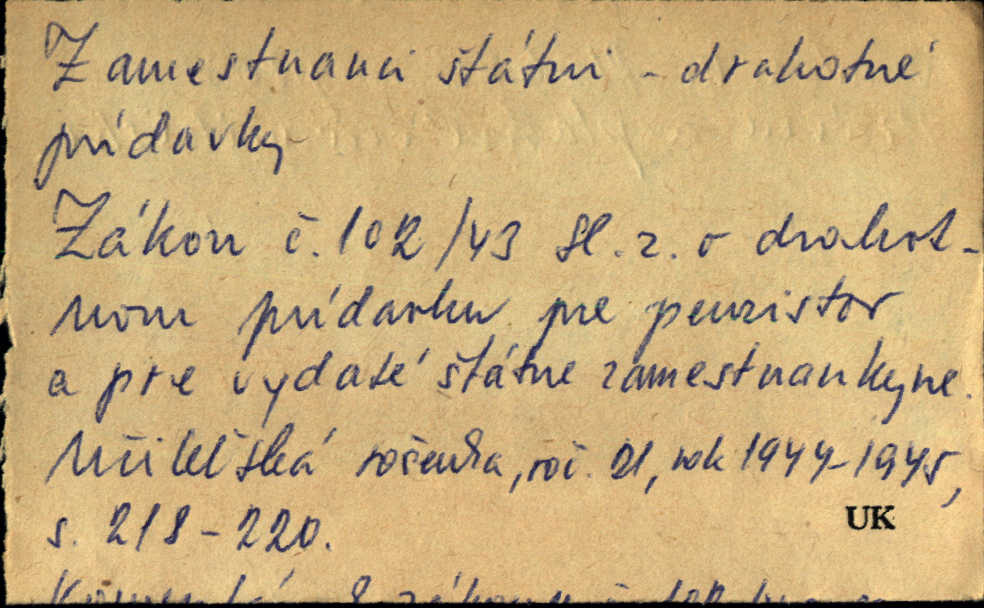 Zamestnanci štátni - drahotné
prídavky
Zákon č. 102/43 Sl. z. o drahot-
nom prídavku pre penzistov
a pre vydaté štátne zamestnankyne.
Učiteľská ročenka, roč. 21, rok 1944-1945,
s. 218-220.
UK